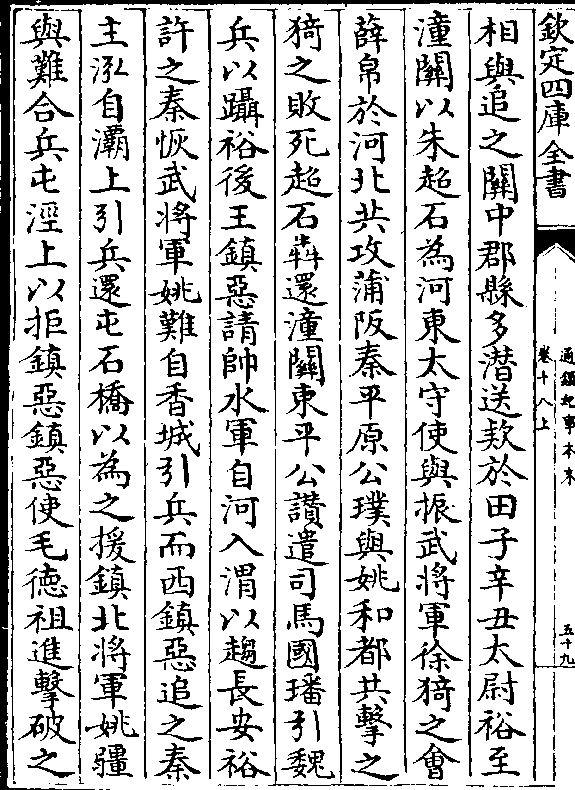 欽定四庫全書
通鑑紀事本末
卷十八上
五十九
相與追之關中郡縣多潛送款於田子辛丑太尉裕至
潼關以朱超石為河東太守使與振武將軍徐猗之會
薛帛於河北共攻蒲阪秦平原公璞與姚和都共擊之
猗之敗死超石犇還潼關東平公讚遣司馬國璠引魏
兵以躡裕後王鎮惡請帥水軍自河入渭以趨長安裕
許之秦恢武將軍姚難自香城引兵而西鎮惡追之秦
主泓自灞上引兵還屯石橋以為之援鎮北將軍姚疆
與難合兵屯涇上以拒鎮惡鎮惡使毛德祖進擊破之